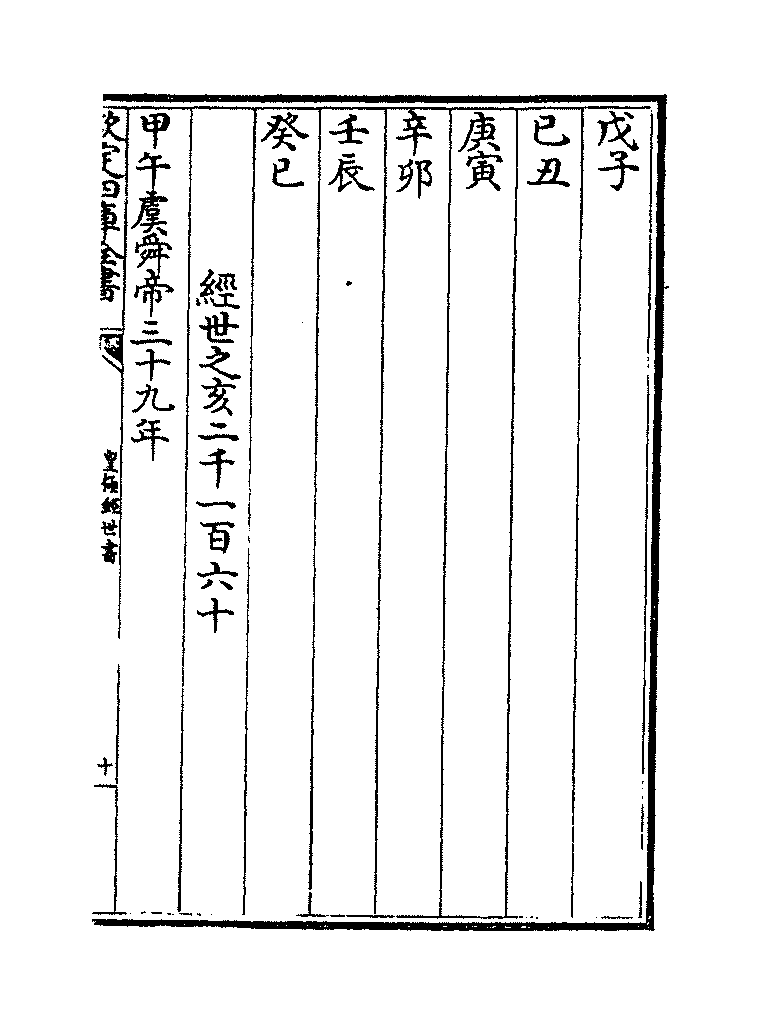 戊子
已丑
庚寅
辛卯
壬辰
癸已
經世之亥二千一百六十
甲午虞舜帝三十九年
欽定四庫全書
皇極經世書
十